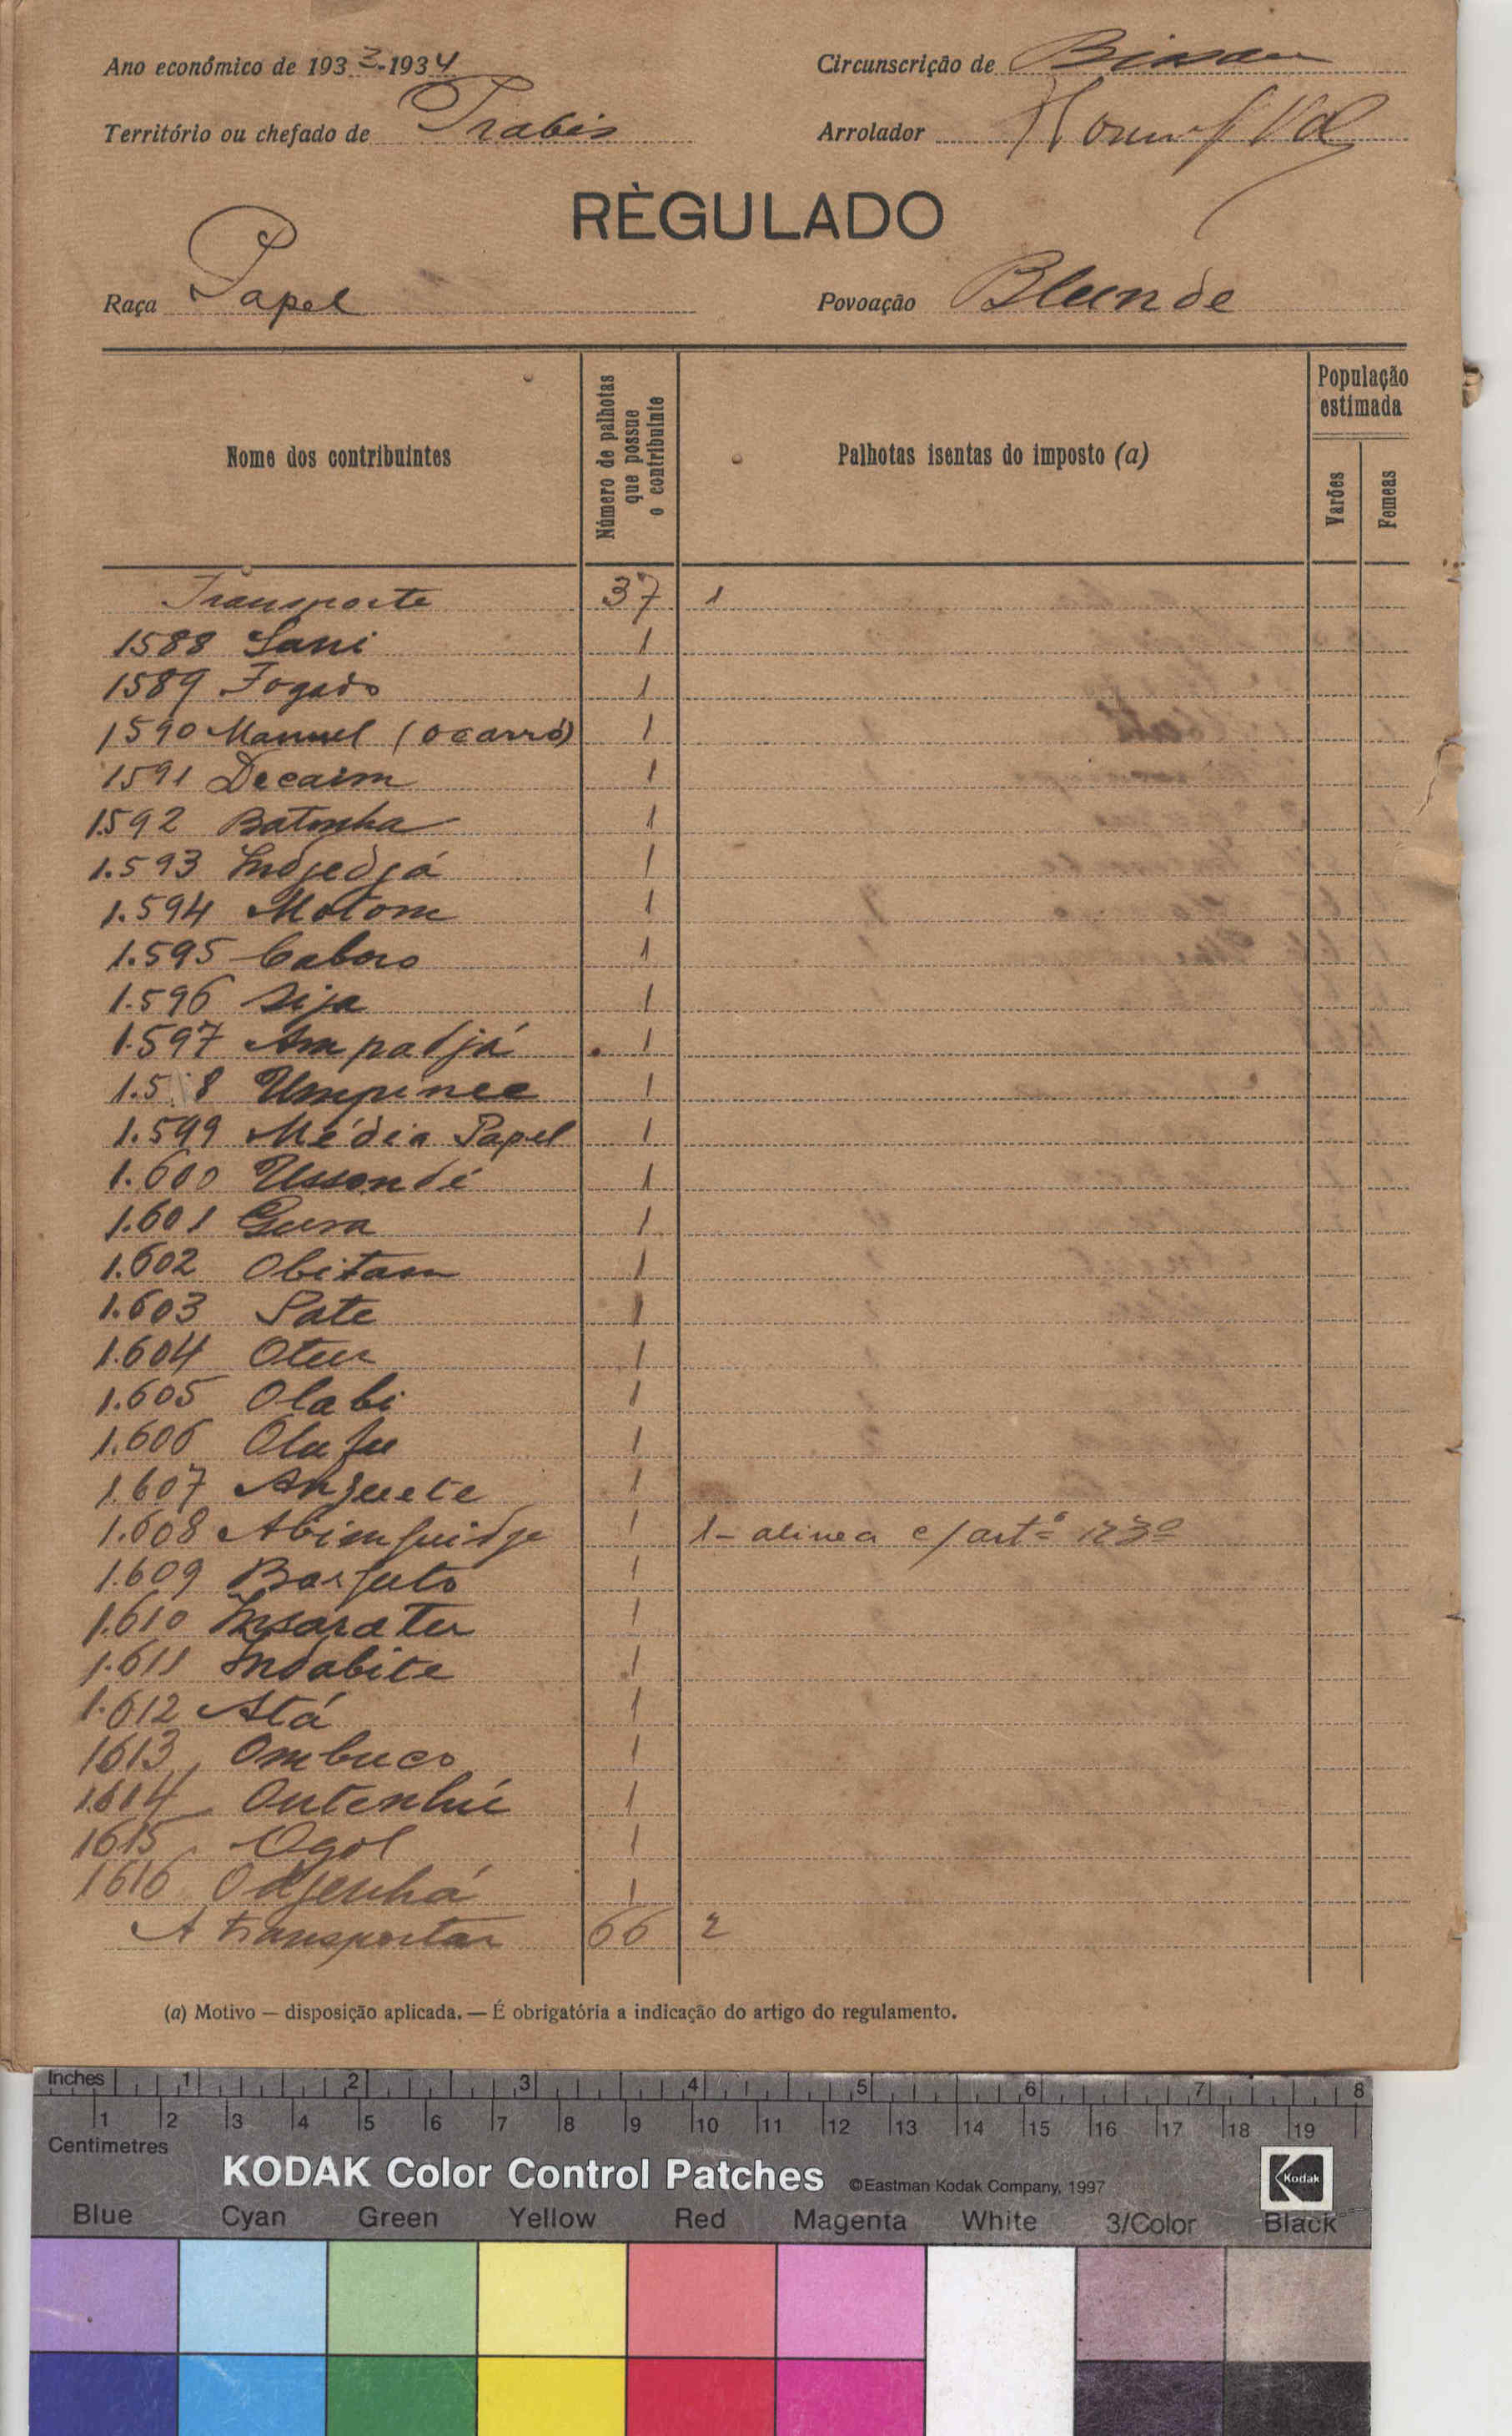 Ano económico de 1933-1934 Circunscrição de Bissau
Território ou chefado de Prabis Arrolador
RÈGULADO
Raça Papel Povoação Blunde
Nome dos contribuintes
Número de palhotas que possue o contribuinte
Palhotas isentas do imposto (a)
População estimada
Varões
Femeas
Transporte 37 1
1588 Sani 1
1589 Fogado 1
1590 Manuel (Ocarró) 1
1591 Decaim 1
1592 Batonha 1
1.593 Indjedjá 1
1.594 Motom 1
1.595 Caboro 1
1.596 Sija 1
1.597 Ampadjá 1
1.5 8 Umpince 1
1.599 Média Papel 1
1.600 Ussondé 1
1.601 1
1.602 Obitam 1
1.603 Pate 1
1.604 Otur 1
1.605 Olabi 1
1.606 Olufu 1
1.607 Anguete 1
1.608 1 1- alinea c/ artº 123º
1.609 Barfuto 1
1.610 Insaratu 1
1.611 Indabite 1
1.612 Atá 1
1613 Ombuco 1
1.614 Outenhú 1
1615 Ogol 1
1616 Odjenhá 1
A transportar 66 2
(a) Motivo — disposição aplicada. — É obrigatória a indicação do artigo do regulamento.
Inches 1 2 3 4 5 6 7 8
1 2 3 4 5 6 7 8 9 10 11 12 13 14 15 16 17 18 19
Centimetres
KODAK Color Control Patches ©Eastman Kodak Company, 1997 Kodak
Blue Cyan Green Yellow Red Magenta White 3/Color Black